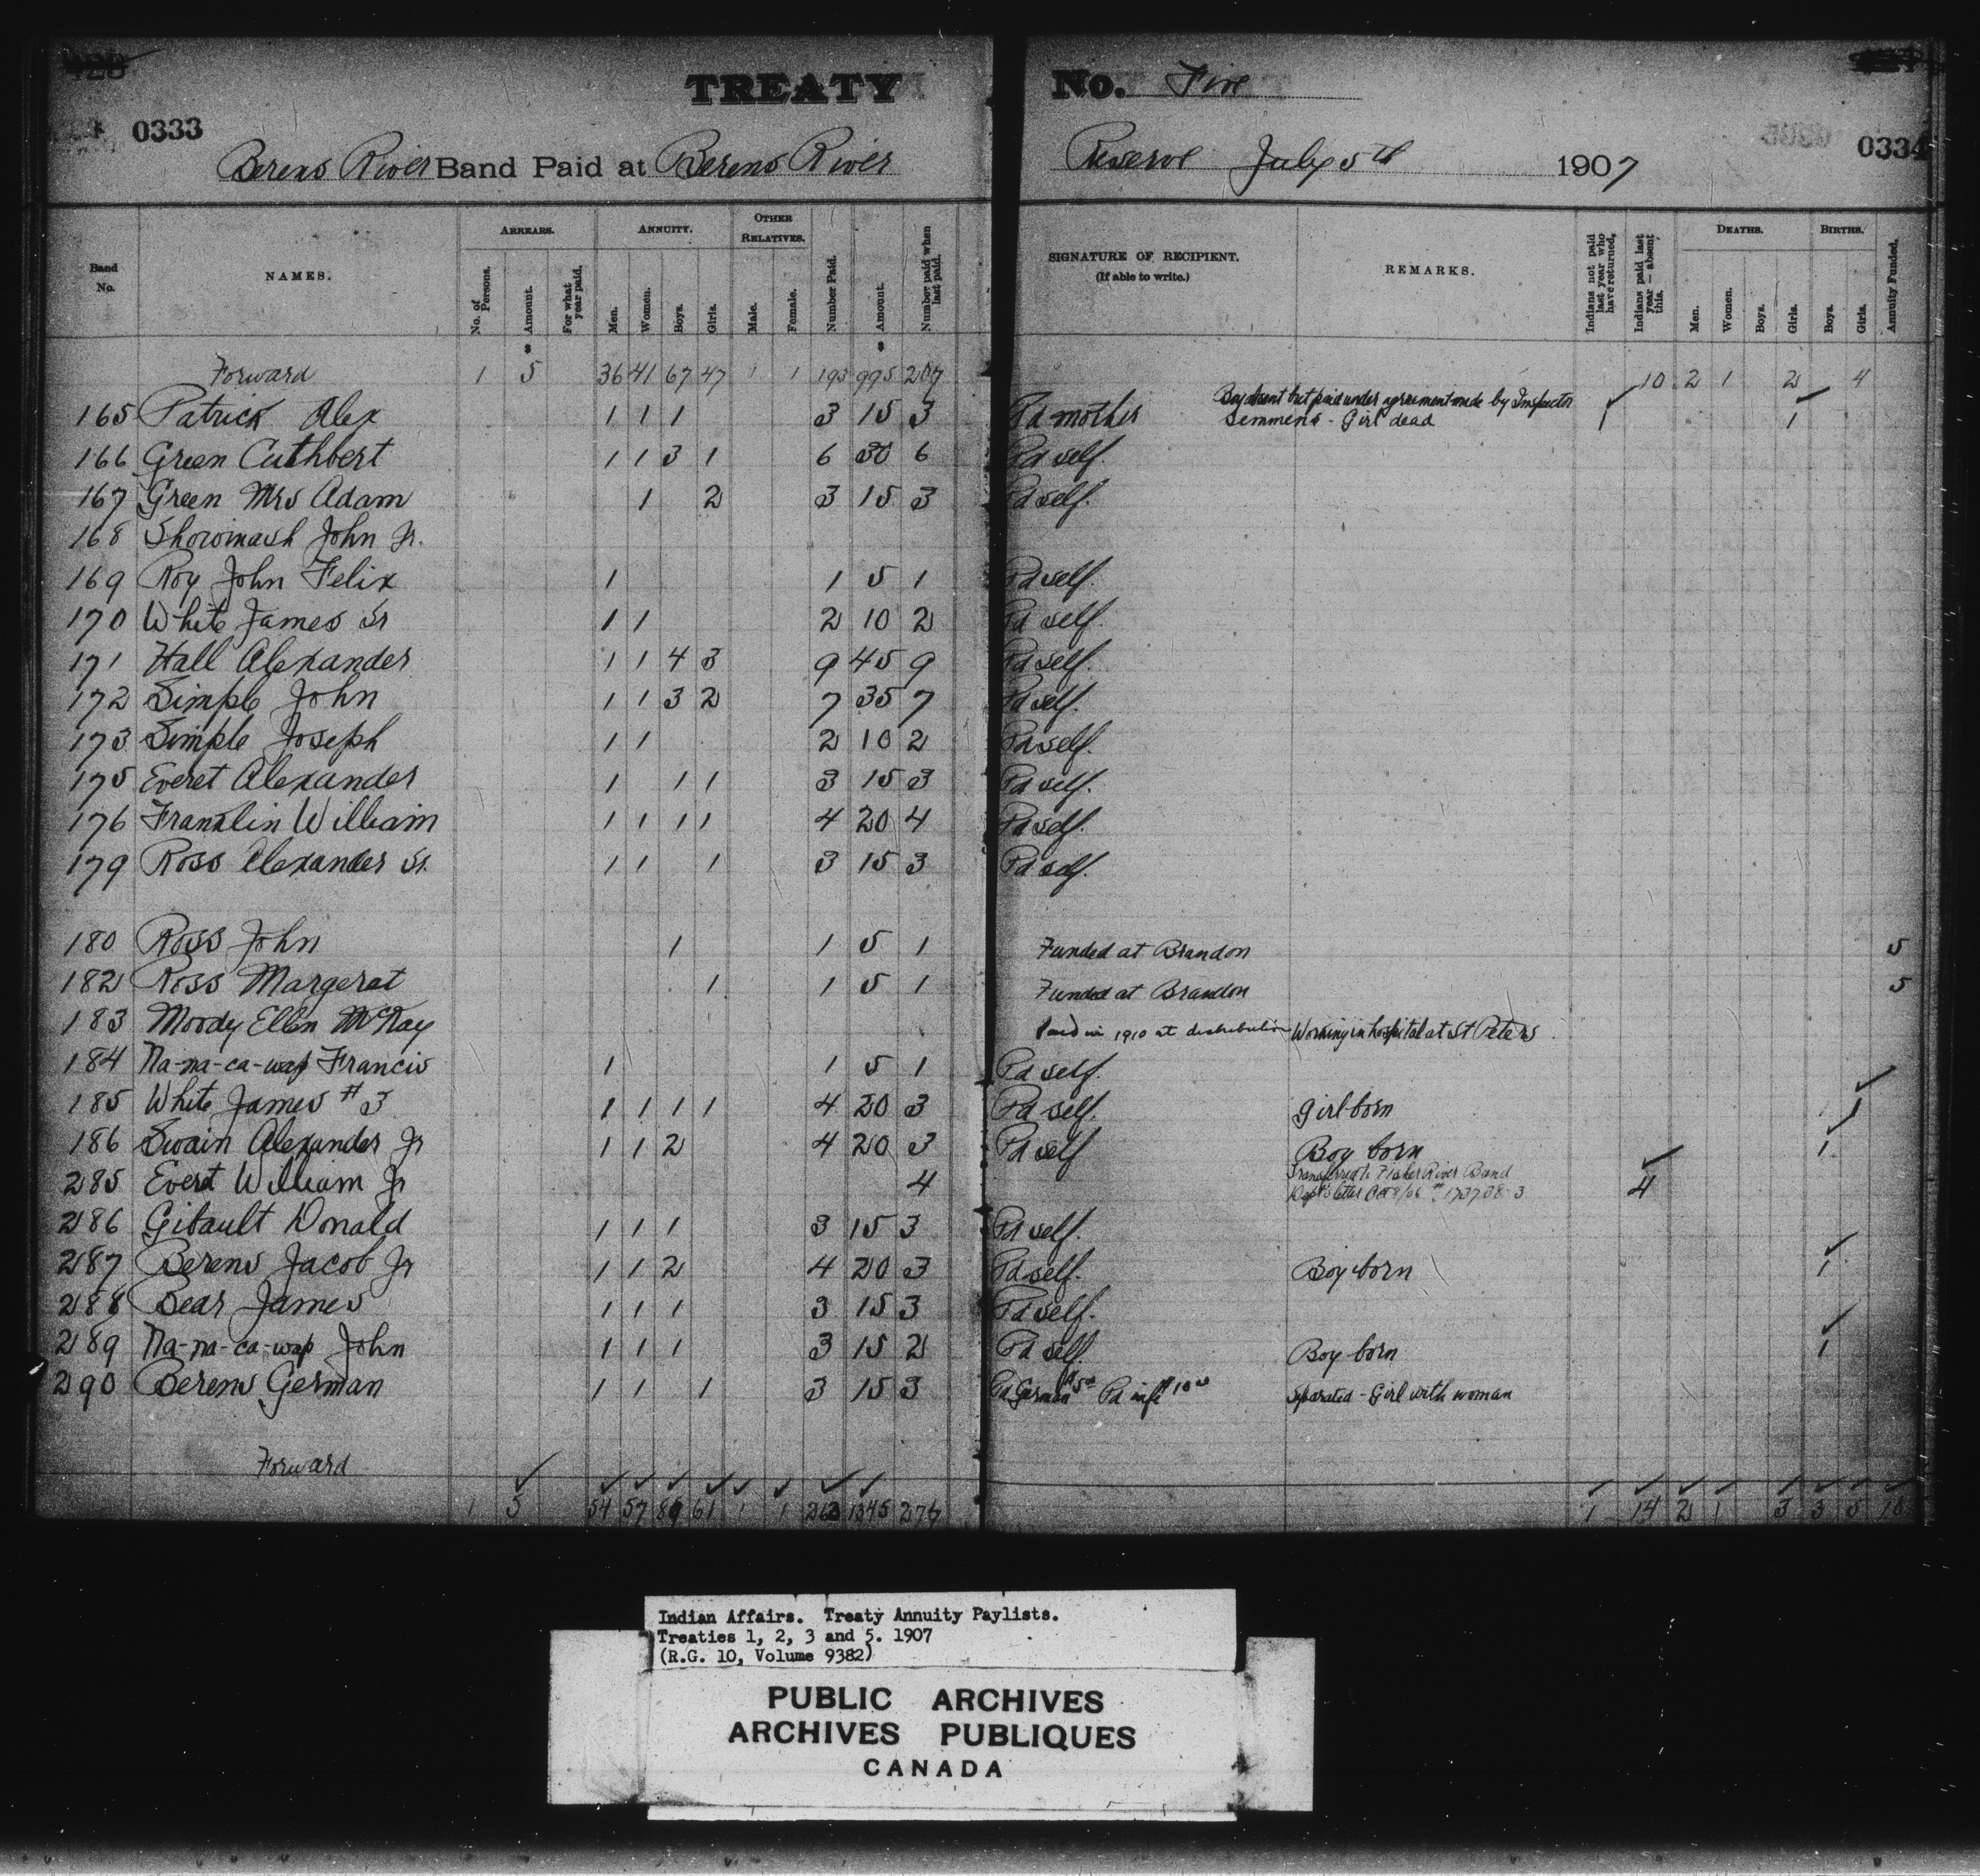 TREATY No. Five
0333 0334
Berens River Band Paid at Berens River Reserve July 5th 1907
Band No. NAMES. ARREARS. No. of Persons. Amount. For what year paid. ANNUITY. Men. Women. Boys. Girls. OTHER RELATIVES. Male. Female. Number Paid. Amount. Number paid when last paid. SIGNATURE OF RECIPIENT. (If able to write.) REMARKS. Indians not paid last year who have returned. Indians paid last year — absent this. DEATHS. Men. Women. Boys. Girls. BIRTHS. Boys. Girls. Annuity Funded.
$ $
Forward 1 5 36 41 67 47 1 1 193 995 207 10 2 1 2 4
165 Patrick Alex 1 1 1 3 15 3 Pd mother Boy absent but paid under agreement made by Inspector Semmens - Girl dead 1 1
166 Green Cuthbert 1 1 3 1 6 30 6 Pd self.
167 Green Mrs Adam 1 2 3 15 3 Pd self.
168 Showinash John Jr.
169 Roy John Felix 1 1 5 1 Pd self.
170 White James Sr 1 1 2 10 2 Pd self.
171 Hall Alexander 1 1 4 3 9 45 9 Pd self.
172 Simple John 1 1 3 2 7 35 7 Pd self.
173 Simple Joseph 1 1 2 10 2 Pd self.
175 Everet Alexander 1 1 1 3 15 3 Pd self.
176 Franklin William 1 1 1 1 4 20 4 Pd self.
179 Ross Alexander Sr. 1 1 1 3 15 3 Pd self.
180 Ross John 1 1 5 1 Funded at Brandon 5
182 Ross Margeret 1 1 5 1 Funded at Brandon 5
183 Moody Ellen McKay Paid in 1910 at distribution Working in hospital at St Peters
184 Na-na-ca-wap Francis 1 1 5 1 Pd self.
185 White James #3 1 1 1 1 4 20 3 Pd self. Girl born 1
186 Swain Alexander Jr 1 1 2 4 20 3 Pd self Boy born 1
285 Everet William Jr 4 Transferred to Fisher River Band Dept's letter Oct 8/06 4
286 Gibault Donald 1 1 1 3 15 3 Pd self.
287 Berens Jacob Jr 1 1 2 4 20 3 Pd self. Boy born 1
288 Bear James 1 1 1 3 15 3 Pd self.
289 Na-na-ca-wap John 1 1 1 3 15 2 Pd self. Boy born 1
290 Berens German 1 1 1 3 15 3 Pd German $5 00 Pd wife $10 00 Separated - Girl with woman
Forward
1 5 54 57 89 61 1 1 263 1345 276 1 14 2 1 3 3 5 10
Indian Affairs. Treaty Annuity Paylists.
Treaties 1, 2, 3 and 5. 1907
(R.G. 10, Volume 9382)
PUBLIC ARCHIVES
ARCHIVES PUBLIQUES
CANADA